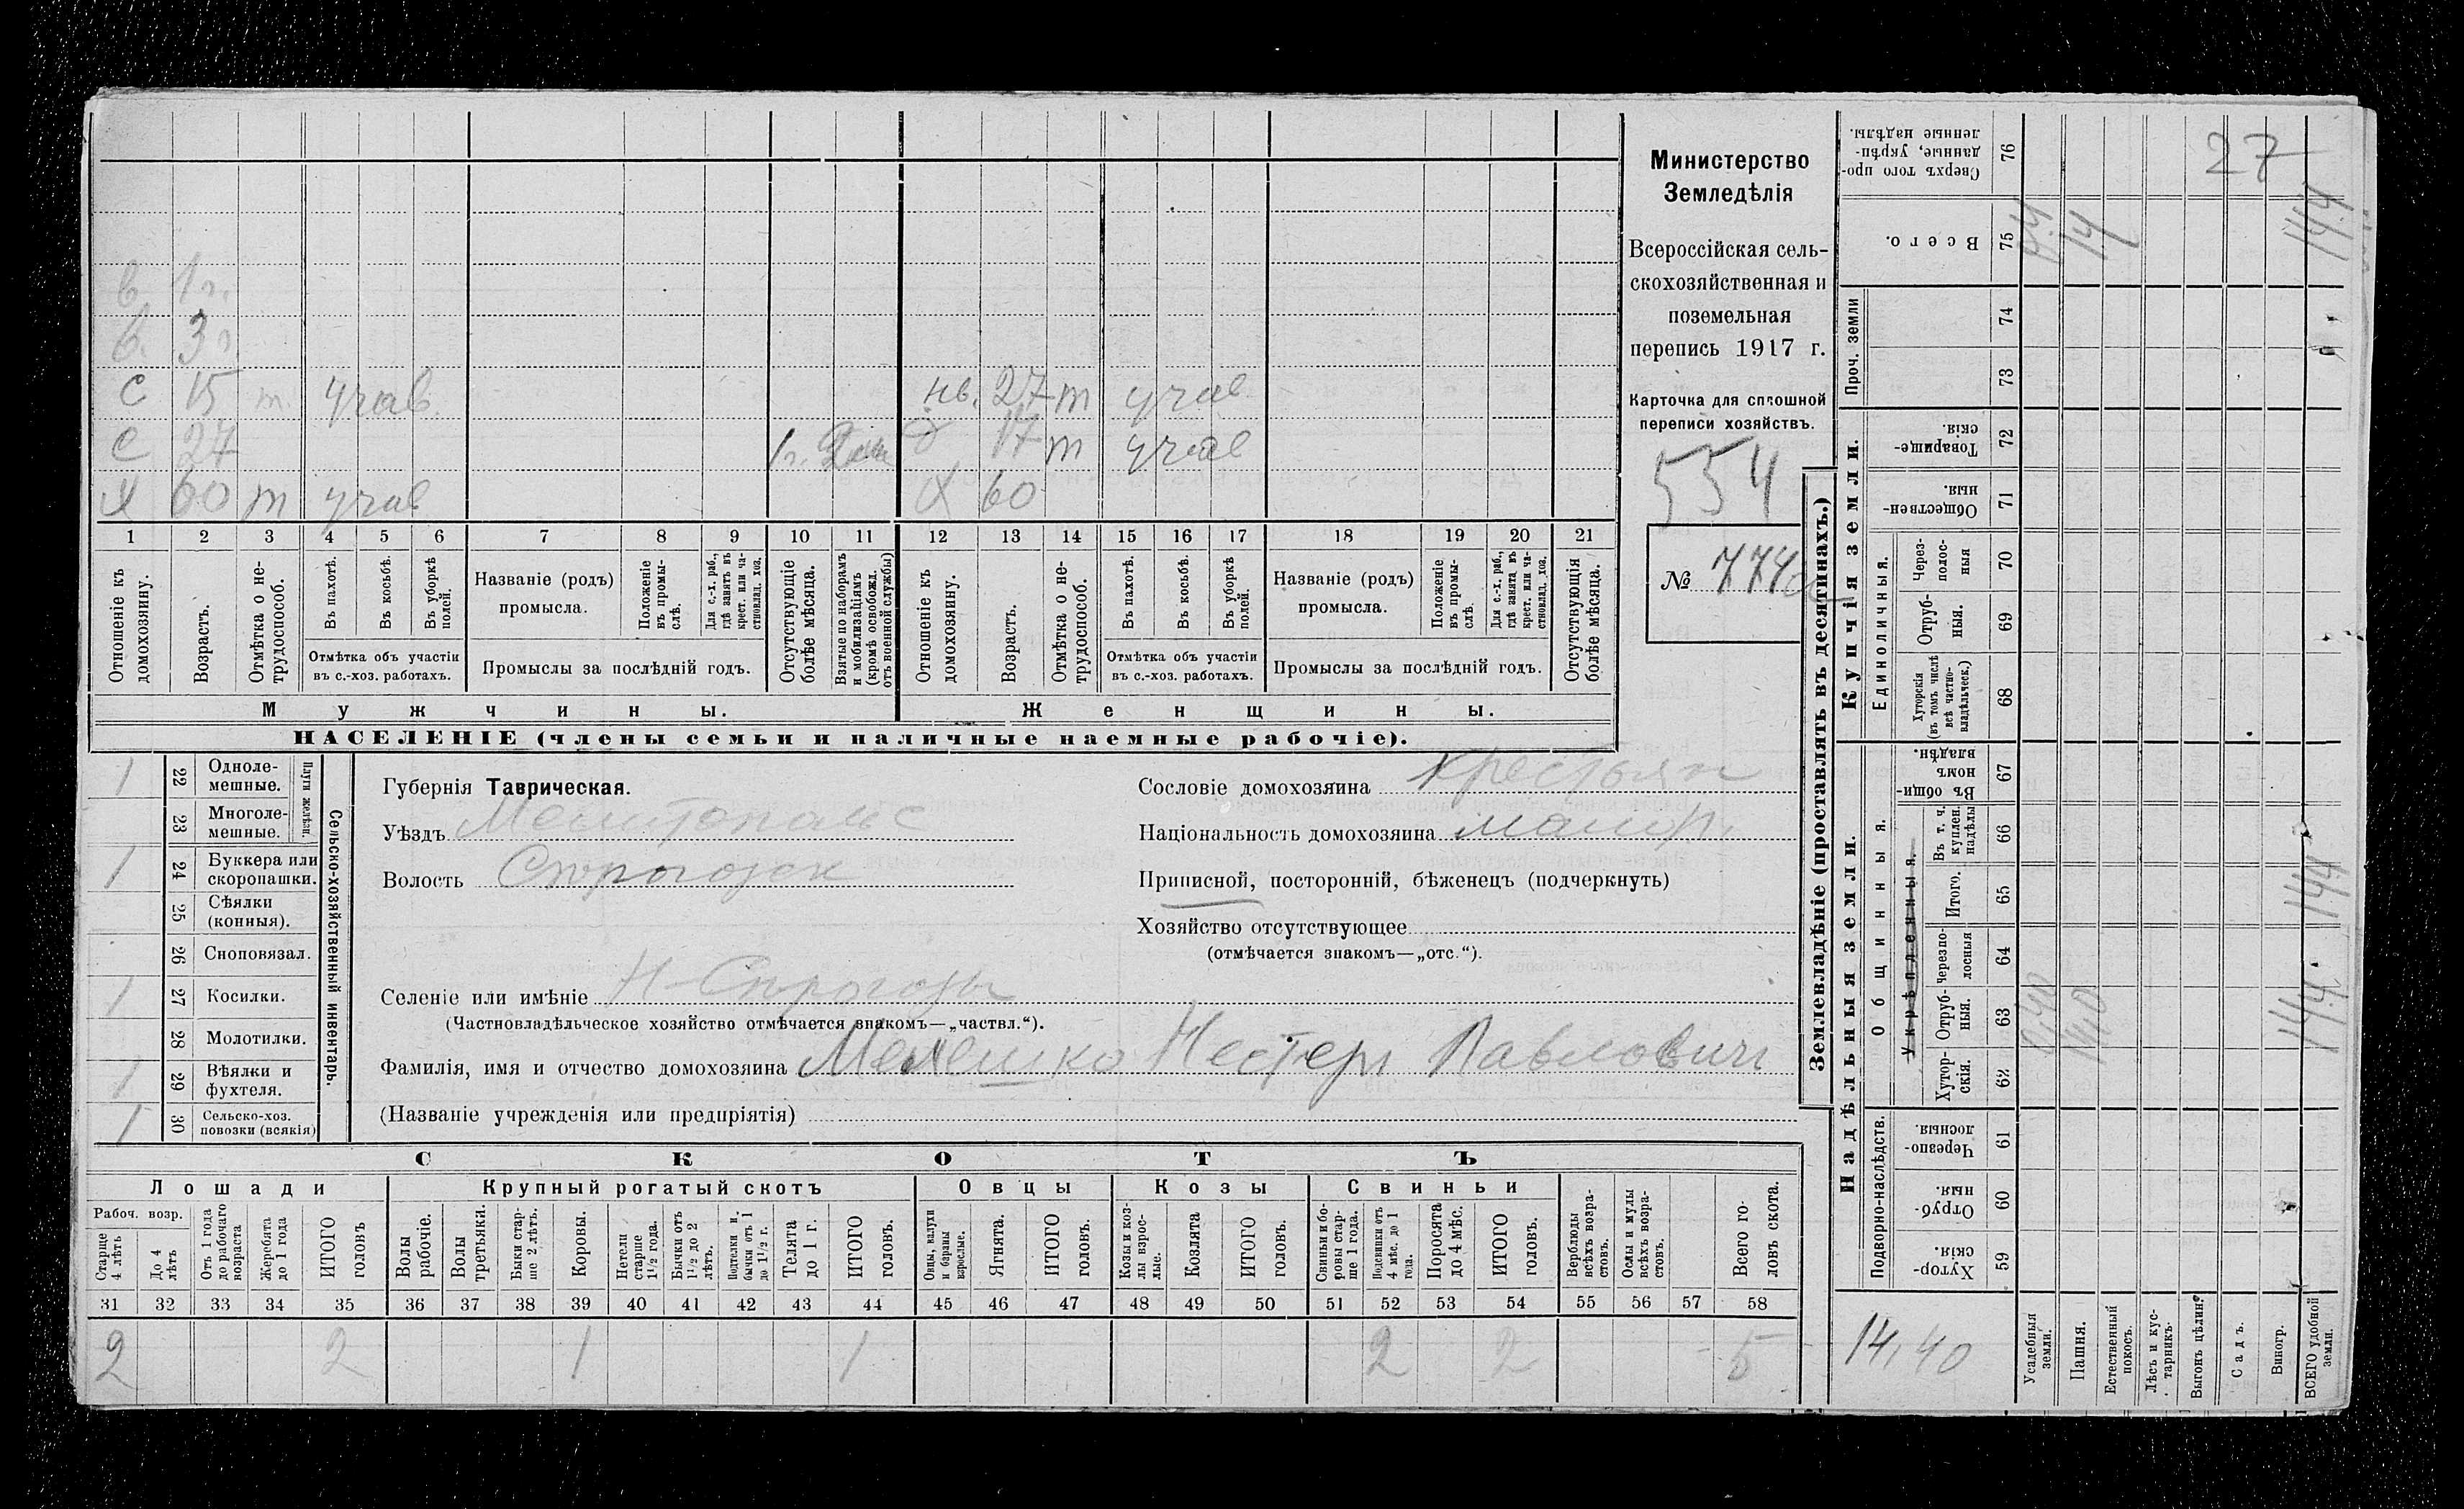 в. 1 г.
в. 3 г.
с 15 т. учав.
нв. 27 т учав.
с 27
д 17 т учав
х 60 т учав
х 60
1 2 3 4 5 6 7 8 9 10 11 12 13 14 15 16 17 18 19 20 21
Отношеніе къ домохозяину.
Возрастъ.
Отмѣтка о нетрудоспособ.
Въ пахотѣ.
Въ косьбѣ.
Въ уборкѣ полей.
Отмѣтка объ участіи
въ с.-хоз. работахъ.
Названіе (родъ)
промысла.
Положеніе въ промыслѣ.
Для с.-х. раб., гдѣ занятъ въ крест. или частновлад. хоз.
Промыслы за послѣдній годъ.
Отсутствующіе болѣе мѣсяца.
Взятые по наборамъ и мобилизаціямъ (кромѣ освобожд. отъ военной службы)
Отношеніе къ домохозяину.
Возрастъ.
Отмѣтка о нетрудоспособ.
Въ пахотѣ.
Въ косьбѣ.
Въ уборкѣ полей.
Отмѣтка объ участіи
въ с.-хоз. работахъ.
Названіе (родъ)
промысла.
Положеніе въ промыслѣ.
Для с.-х. раб., гдѣ занята въ крест. или частновлад. хоз.
Промыслы за послѣдній годъ.
Отсутствующія болѣе мѣсяца.
Мужчины.
Женщины.
НАСЕЛЕНІЕ (члены семьи и наличные наемные рабочіе).
Министерство
Земледѣлія
Всероссійская сель-
скохозяйственная и
поземельная
перепись 1917 г.
Карточка для сплошной
переписи хозяйствъ.
554
№ 774
1 22 Одноле-
мешные.
23 Многоле-
мешные.
Плуги желѣзн.
1 24 Буккера или
скоропашки.
25 Сѣялки
(конныя).
26 Сноповязал.
1 27 Косилки.
28 Молотилки.
1 29 Вѣялки и
фухтеля.
1 30 Сельско-хоз.
повозки (всякія)
Сельско-хозяйственный инвентарь.
Губернія Таврическая.
Уѣздъ Мелитопольс
Волость Сирогозск
Селеніе или имѣніе Н-Сирогозы
(Частновладѣльческое хозяйство отмѣчается знакомъ—„частвл.“).
Фамилія, имя и отчество домохозяина Мелешко Нестеръ Павловичъ
(Названіе учрежденія или предпріятія)
Сословіе домохозяина крестьян
Національность домохозяина малор.
Приписной, посторонній, бѣженецъ (подчеркнуть)
Хозяйство отсутствующее
(отмѣчается знакомъ—„отс.“).
СКОТЪ
Лошади
Крупный рогатый скотъ
Овцы
Козы
Свиньи
Рабоч. возр.
Старше 4 лѣтъ
До 4 лѣтъ
Отъ 1 года до рабочаго возраста
Жеребята до 1 года
ИТОГО головъ
Волы рабочіе.
Волы третьяки.
Быки старше 2 лѣтъ.
Коровы.
Нетели старше 1½ года.
Бычки отъ 1½ до 2 лѣтъ.
Подтелки и бычки отъ 1 до 1½ г.
Телята до 1 г.
ИТОГО головъ.
Овцы, валухи и бараны взрослые.
Ягнята.
ИТОГО головъ.
Козы и козлы взрослые.
Козлята
ИТОГО головъ.
Свиньи и боровы старше 1 года.
Подсвинки отъ 4 мѣс. до 1 года.
Поросята до 4 мѣс.
ИТОГО головъ.
Верблюды всѣхъ возрастовъ.
Ослы и мулы всѣхъ возрастовъ.
Всего головъ скота.
31 32 33 34 35 36 37 38 39 40 41 42 43 44 45 46 47 48 49 50 51 52 53 54 55 56 57 58
2 2 1 1 2 2 5
Землевладѣніе (проставлять въ десятинахъ.)
Купчія земли.
Надѣльныя земли.
Сверхъ того проданные, укрѣпленные надѣлы. 76
27
Всего. 75
14
Проч. земли
74
73
Товарищескія. 72
Общественныя. 71
Единоличныя.
Черезполосныя 70
Отрубныя. 69
Хуторскія (въ томъ числѣ всѣ частновладѣльческ.) 68
Въ общинномъ владѣн. 67
Общинныя.
Укрѣпленныя.
Въ т. ч. куплен. надѣлы 66
Итого. 65
Черезполосныя 64
Отрубныя. 63
Хуторскія. 62
Подворно-наслѣдств.
Черезполосныя 61
Отрубныя. 60
Хуторскія. 59
14,40
Усадебныя земли.
Пашня.
Естественный покосъ.
Лѣсъ и кустарникъ.
Выгонъ цѣлин.
Садъ.
Виногр.
ВСЕГО удобной земли.